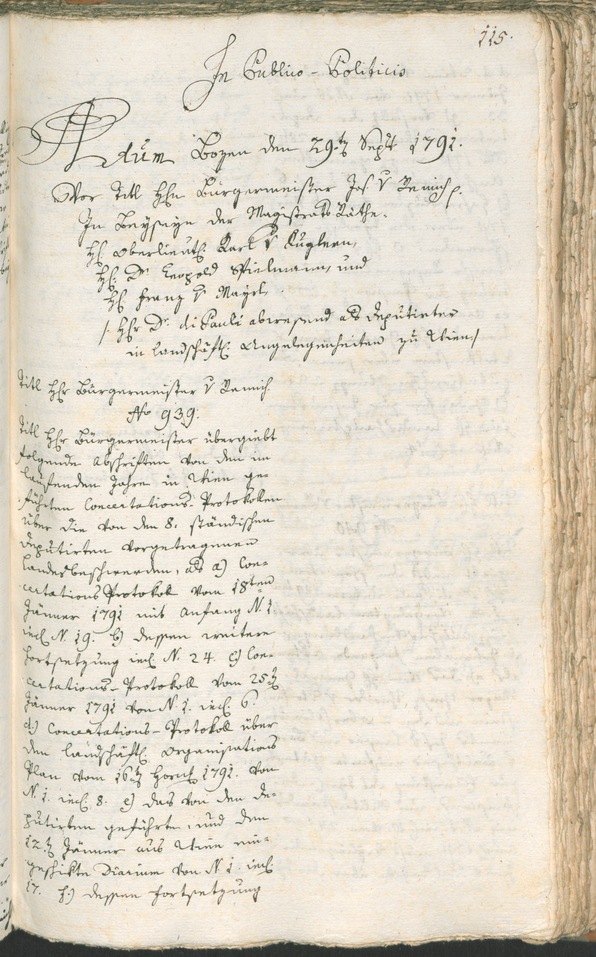 115.
In Publico-Politicis
Actum Bozen den 29.t Sept 1791.
Vor Titl Hrn Bürgermeister Jos. v Remich p.
In Beyseyn der Magistrats Räthe.
H. Oberlieut. Karl v Kuglern,
H. Dr. Leopold Spielmann, und
H. Franz v Mayrl,
/: Hr Dr. di Pauli abwesend als Deputirter
in landschäftl. Angelegenheiten zu Wien :/
Titl Hr Bürgermeister v Remich.
No 939.
Titl Hr Bürgermeister übergiebt
folgende Abschriften von den im
laufenden Jahre in Wien ge-
führten Concertations-Protokollen
über die von den 8. ständischen
Deputirten vorgetragenen
Landesbeschwerden, als a) Con-
certations Protokoll vom 18ten
Jänner 1791 mit Anfang N. 1.
incl. N. 19. b) dessen weitere
Fortsetzung incl. N. 24. c) Con-
certations-Protokoll vom 25t
Jänner 1791 von N. 1. incl. 6.
d) Concertations-Protokoll über
den landschäftl. Organisations
Plan vom 16t Horn. 1791. von
N. 1. incl. 8. e) das von den De-
putirten geführte, und den
12.t Jänner aus Wien ein-
geschickte Diarium von N. 1. incl.
17. f.) dessen Fortsetzung